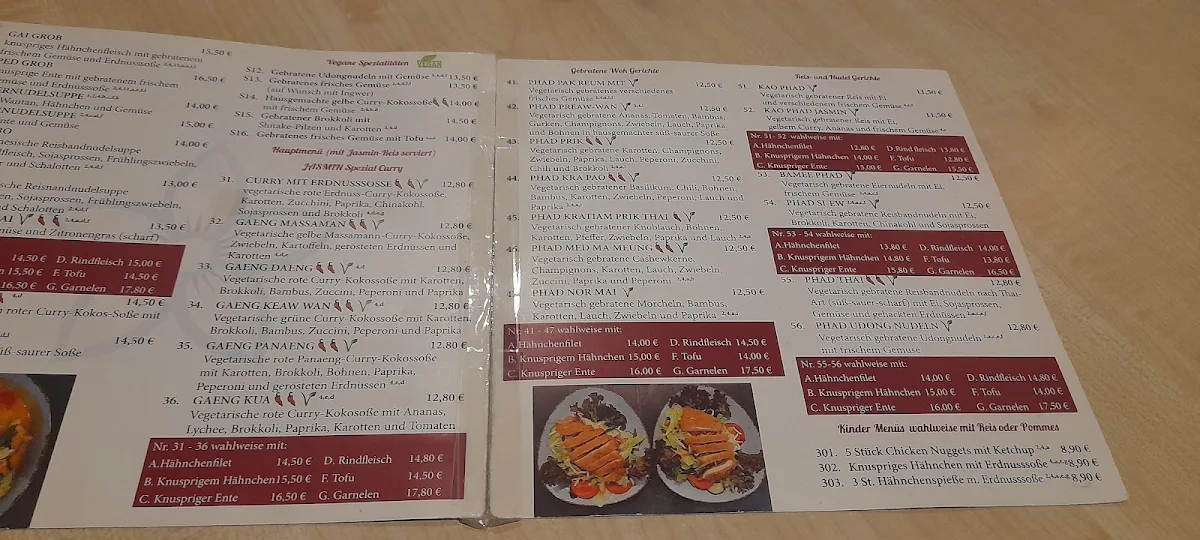 GAI GROB
knuspriges Hähnchenfleisch mit gebratenem 15,50 €
frischem Gemüse und Erdnusssoße
PED GROB
knusprige Ente mit gebratenem frischem 16,50 €
müse und Erdnusssoße
ERNUDELSUPPE 14,00 €
Wantan, Hähnchen und Gemüse
RNUDELSUPPE
nte und Gemüse 15,00 €
BO
nesische Reisbandnudelsuppe 14,00 €
dfleisch, Sojasprossen, Frühlingszwiebeln,
er und Schalotten
sche Reisnandnudelsuppe 13,00 €
en, Sojasprossen, Frühlingszwiebeln,
d Schalotten
AI 13,50 €
müse und Zitronengras (scharf)
14,50 € D. Rindfleisch 15,00 €
15,50 € F. Tofu 14,50 €
16,50 € G. Garnelen 17,80 €
14,50 €
n roter Curry-Kokos-Soße mit
14,50 €
üß-saurer Soße
Vegane Spezialitäten VEGAN
S12. Gebratene Udongnudeln mit Gemüse 13,50 €
S13. Gebratenes frisches Gemüse 13,50 €
(auf Wunsch mit Ingwer)
S14. Hausgemachte gelbe Curry-Kokossoße 14,00 €
mit frischem Gemüse
S15. Gebratener Brokkoli mit 14,50 €
Shitake-Pilzen und Karotten
S16. Gebratenes frisches Gemüse mit Tofu 14,00 €
Hauptmenü (mit Jasmin-Reis serviert)
JASMIN Spezial Curry
31. CURRY MIT ERDNUSSSOSSE 12,80 €
vegetarische rote Erdnuss-Curry-Kokossoße,
Karotten, Zucchini, Paprika, Chinakohl,
Sojasprossen und Brokkoli
32. GAENG MASSAMAN 12,80 €
Vegetarische gelbe Massamann-Curry-Kokossoße,
Zwiebeln, Kartoffeln, gerösteten Erdnüssen und
Karotten
33. GAENG DAENG 12,80 €
Vegetarische rote Curry-Kokossoße mit Karotten,
Brokkoli, Bambus, Zuccini, Peperoni und Paprika
34. GAENG KEAW WAN 12,80 €
Vegetarische grüne Curry-Kokossoße mit Karotten,
Brokkoli, Bambus, Zuccini, Peperoni und Paprika
35. GAENG PANAENG 12,80 €
Vegetarische rote Panaeng-Curry-Kokossoße
mit Karotten, Brokkoli, Bohnen, Paprika,
Peperoni und gerösteten Erdnüssen
36. GAENG KUA 12,80 €
Vegetarische rote Curry-Kokosoße mit Ananas,
Lychee, Brokkoli, Paprika, Karotten und Tomaten
Nr. 31 - 36 wahlweise mit:
A.Hähnchenfilet 14,50 € D. Rindfleisch 14,80 €
B. Knusprigem Hähnchen 15,50 € F. Tofu 14,50 €
C. Knuspriger Ente 16,50 € G. Garnelen 17,80 €
Gebratene Wok Gerichte
41. PHAD PAK REUM MIT 12,50 €
Vegetarisch gebratenes verschiedenes
frisches Gemüse
42. PHAD PREAW-WAN 12,50 €
Vegetarisch gebratene Ananas, Tomaten, Bambus,
Gurken, Champignons, Zwiebeln, Lauch, Paprika
und Bohnen in hausgemachter süß-saurer Soße
43. PHAD PRIK 12,50 €
Vegetarisch gebratene Karotten, Champignons,
Zwiebeln, Paprika, Lauch, Peperoni, Zucchini,
Chili und Brokkoli
44. PHAD KRA PAO 12,50 €
Vegetarisch gebratener Basilikum, Chili, Bohnen,
Bambus, Karotten, Zwiebeln, Peperoni, Lauch und
Paprika
45. PHAD KRATIAM PRIK THAI 12,50 €
Vegetarisch gebratener Knoblauch, Bohnen,
Karotten, Pfeffer, Zwiebeln, Paprika und Lauch
PHAD MED MA MEUNG 12,50 €
Vegetarisch gebratene Cashewkerne,
Champignons, Karotten, Lauch, Zwiebeln,
Zuccini, Paprika und Peperoni
PHAD NOR MAI 12,50 €
Vegetarisch gebratene Morcheln, Bambus,
Karotten, Lauch, Zwiebeln und Paprika
Nr. 41 - 47 wahlweise mit:
A.Hähnchenfilet 14,00 € D. Rindfleisch 14,50 €
B. Knusprigem Hähnchen 15,00 € F. Tofu 14,00 €
C. Knuspriger Ente 16,00 € G. Garnelen 17,50 €
Reis- und Nudel Gerichte
51. KAO PHAD 11,50 €
Vegetarisch gebratener Reis mit Ei
und verschiedenem frischem Gemüse
52. KAO PHAD JASMIN 11,50 €
Vegetarisch gebratener Reis mit Ei,
gelbem Curry, Ananas und frischem Gemüse
Nr. 51- 52 wahlweise mit:
A.Hähnchenfilet 12,80 € D. Rindfleisch 13,80 €
B. Knusprigem Hähnchen 14,00 € F. Tofu 12,80 €
C. Knuspriger Ente 15,00 € G. Garnelen 15,50 €
53. BAMEE PHAD 12,50 €
Vegetarisch gebratene Eiernudeln mit Ei,
frischem Gemüse
54. PHAD SI EW 12,50 €
Vegetarisch gebratene Reisbandnudeln mit Ei,
Brokkoli, Karotten, Chinakohl und Sojasprossen
Nr. 53 - 54 wahlweise mit:
A.Hähnchenfilet 13,80 € D. Rindfleisch 14,00 €
B. Knusprigem Hähnchen 14,80 € F. Tofu 13,80 €
C. Knuspriger Ente 15,80 € G. Garnelen 16,50 €
55. PHAD THAI 12,80 €
Vegetarisch gebratene Reisbandnudeln nach Thai-
Art (süß-sauer-scharf) mit Ei, Sojasprossen,
Gemüse und gehackten Erdnüssen
56. PHAD UDONG NUDELN 12,80 €
Vegetarisch gebratene Udongnudeln
mit frischem Gemüse
Nr. 55-56 wahlweise mit:
A.Hähnchenfilet 14,00 € D. Rindfleisch 14,80 €
B. Knusprigem Hähnchen 15,00 € F. Tofu 14,00 €
C. Knuspriger Ente 16,00 € G. Garnelen 17,50 €
Kinder Menüs wahlweise mit Reis oder Pommes
301. 5 Stück Chicken Nuggets mit Ketchup 8,90 €
302. Knuspriges Hähnchen mit Erdnusssoße 8,90 €
303. 3 St. Hähnchenspieße m. Erdnusssoße 8,90 €